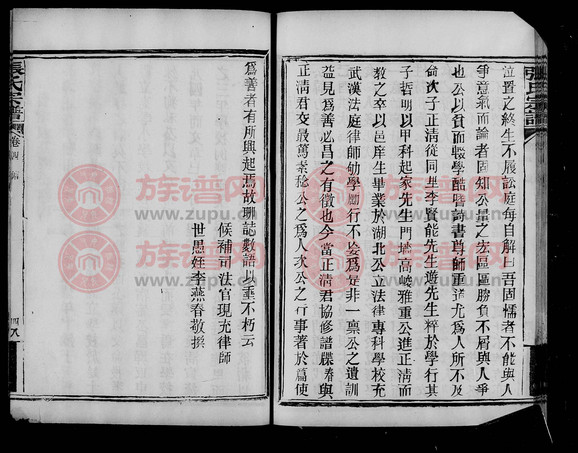 張氏宗譜
位置之終生不展訟庭每自解曰吾固懦者不能與人
爭意氣而論者固知公量之宏區區勝負不屑與人爭
也公以貧而輟學酷嗜詩書尊師重道尤爲人所不及
命次子正清從同里李賢能先生遊先生粹於學行其
子哲明以甲科起家先生門墻高峻雅重公進正清而
教之卒以邑庠生畢業於湖北公立法律專科學校充
武漢法庭律師劬學勵行不妄爲是非一稟公之遺訓
益見爲善必昌之有徵也今當正清君協修譜牒春與
正清君交最篤素稔公之爲人次公之行事著於篇使
爲善者有所與起焉故聯誌數語以垂不朽云
候補司法官現充律師
世愚姪李燕春敬撰
張氏宗譜
卷四
族谱网
www.zupu.cn
族谱网
www.zupu.cn
族谱网
www.zupu.cn
族谱网
www.zupu.cn